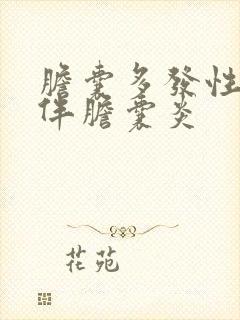 膽囊多發性
伴膽囊炎
花苑